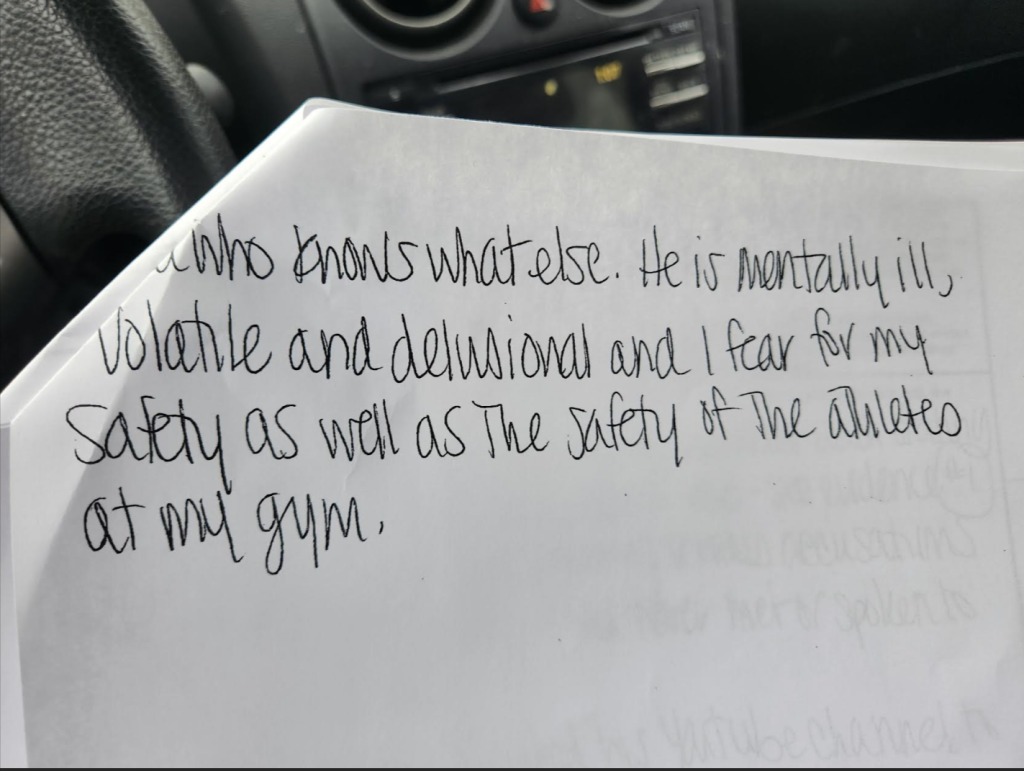 who knows what else. He is mentally ill,
volatile and delusional and I fear for my
safety as well as The safety of The athletes
at my gym.